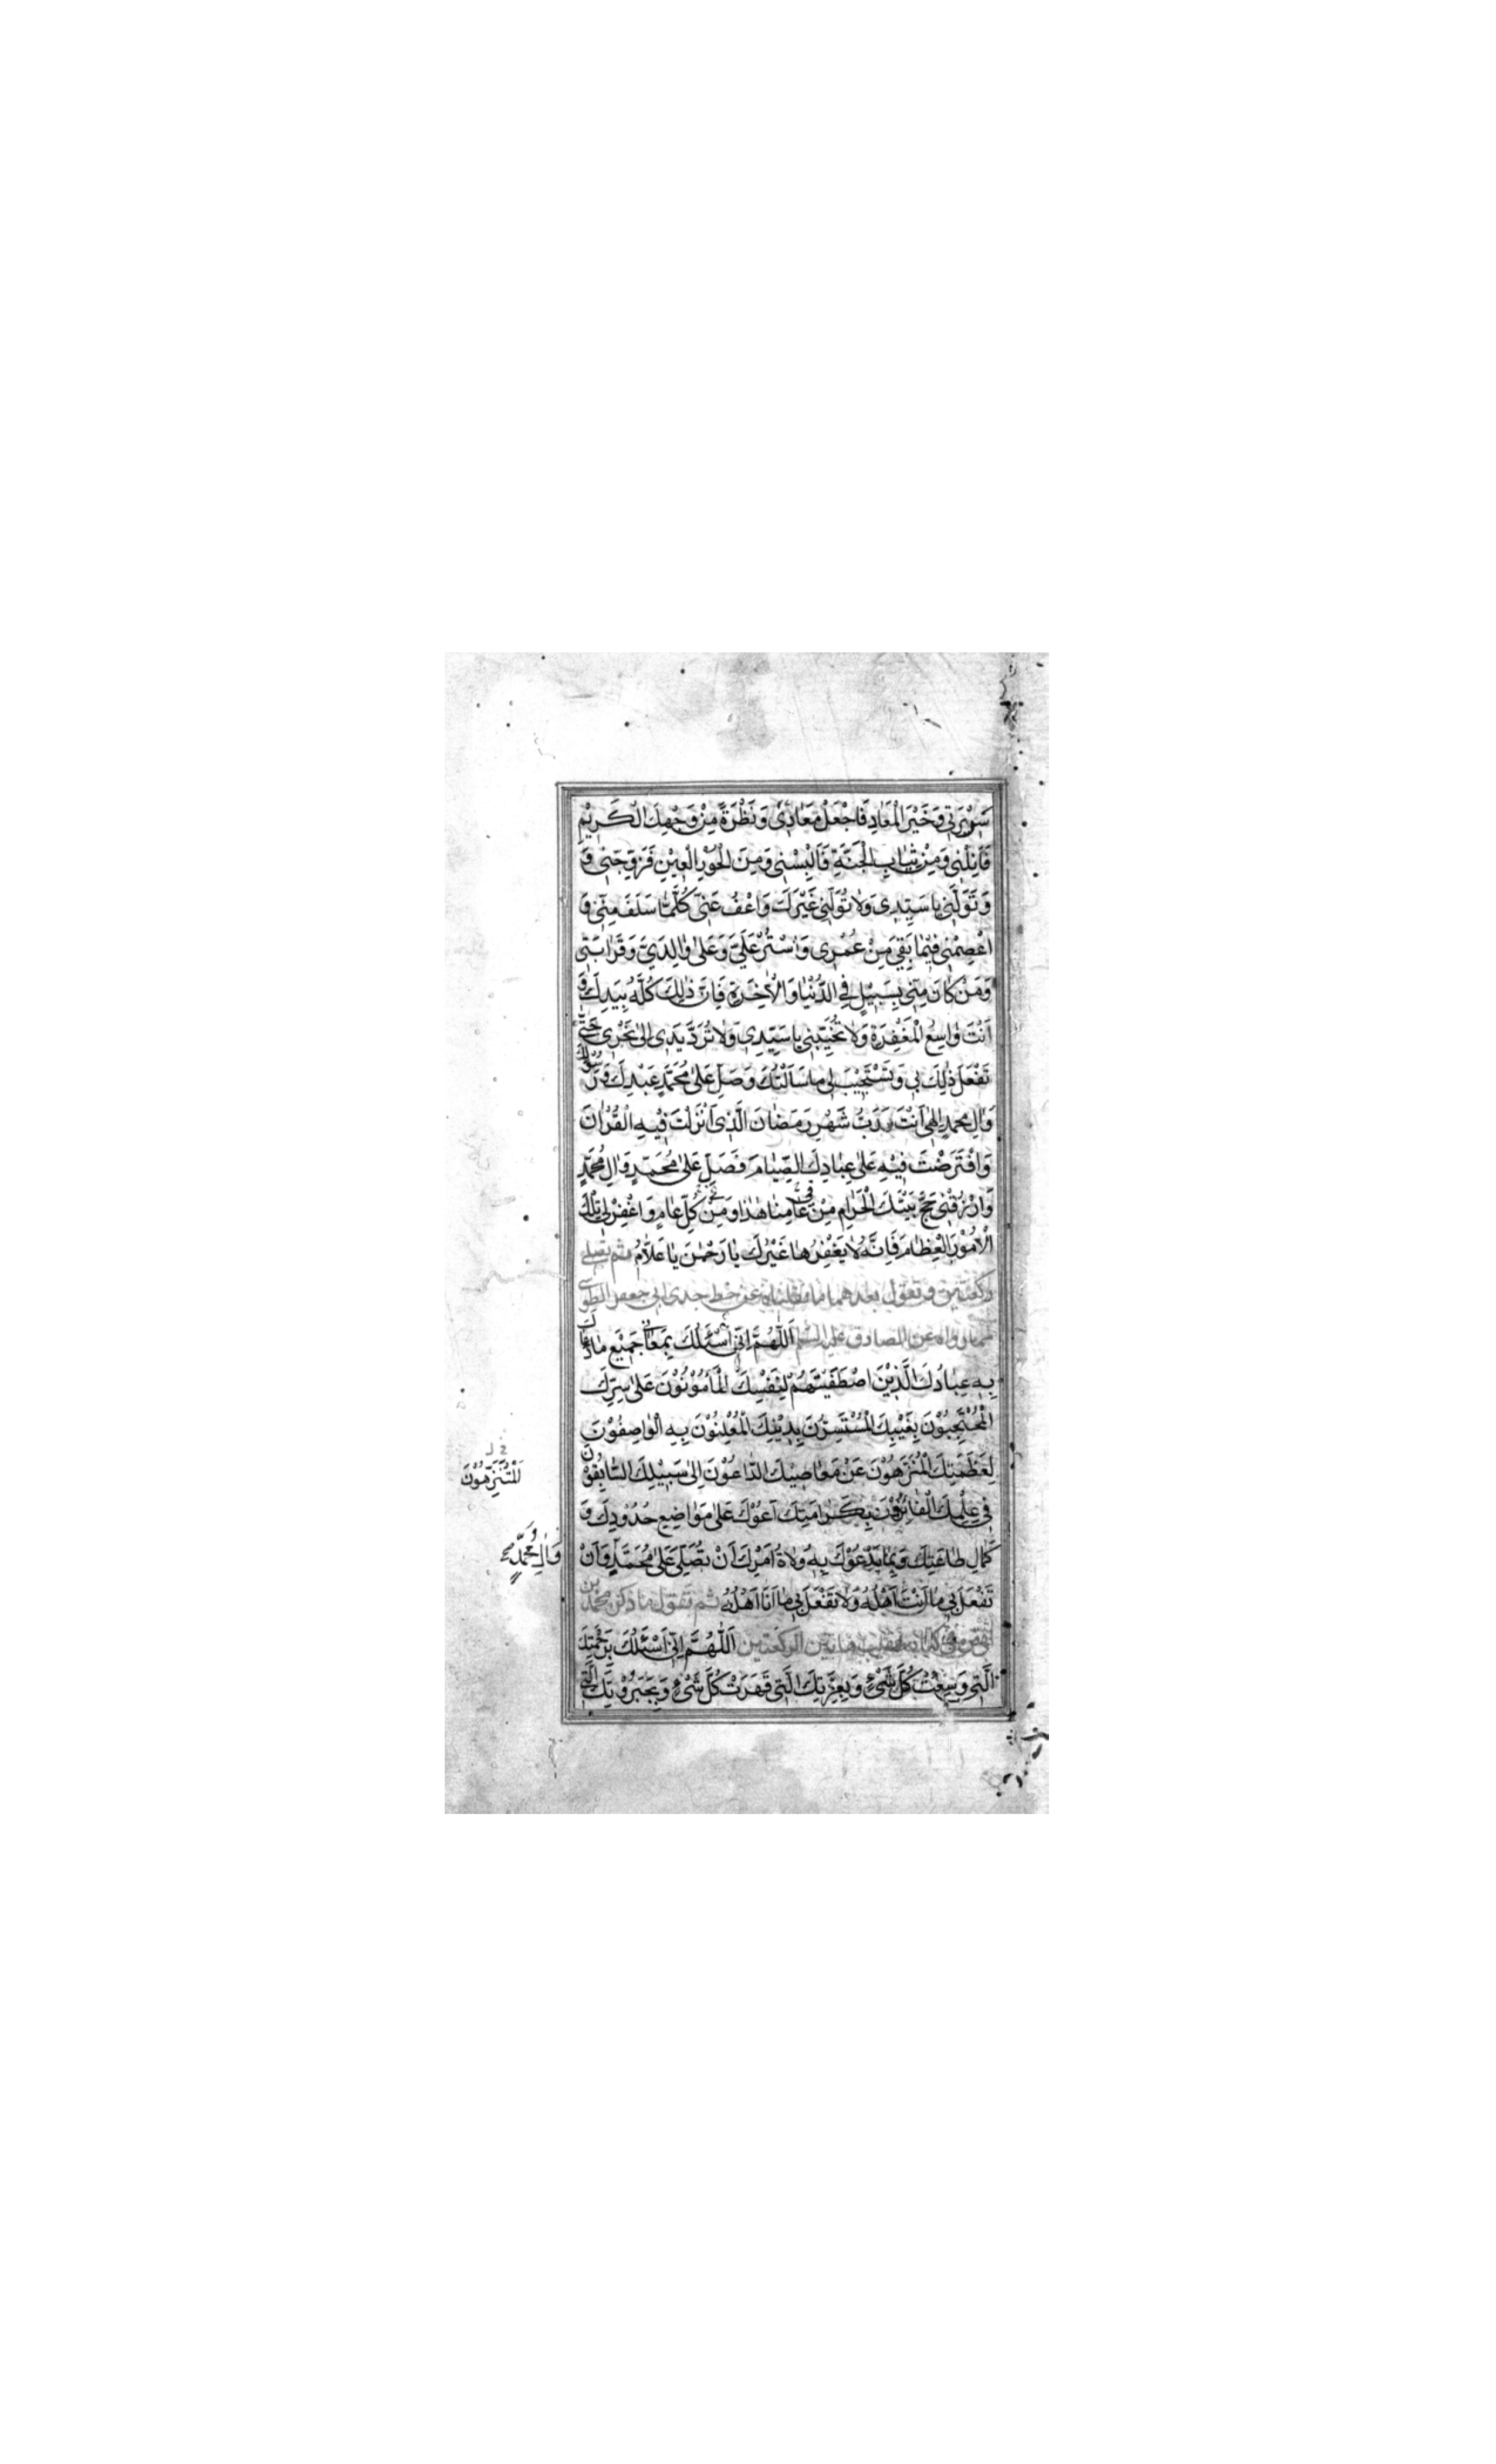 سَرِيْرَتِي وَخَيْرَ الْمَعَادِ فَاجْعَلْ مَعَادِىْ وَنَظْرَةً مِنْ وَجْهِكَ الْكَرِيْمِ
فَاَنِلْنِى وَمِنْ ثِيَابِ الْجَنَّةِ فَاَلْبِسْنِى وَمِنَ الْحُوْرِ الْعِيْنِ فَزَوِّجْنِى وَ
وَتَوَلَّنِى يَا سَيِّدِى وَلَا تُوَلِّنِى غَيْرَكَ وَاعْفُ عَنِّى كُلَّمَا سَلَفَ مِنِّى وَ
اعْصِمْنِى فِيْمَا بَقِيَ مِنْ عُمْرِى وَاسْتُرْ عَلَيَّ وَعَلَى وَالِدَيَّ وَقَرَابَتِى
وَمَنْ كَانَ مِنِّى بِسَبِيْلٍ فِي الدُّنْيَا وَالْاٰخِرَةِ فَاِنَّ ذٰلِكَ كُلَّهُ بِيَدِكَ وَ
اَنْتَ وَاسِعُ الْمَغْفِرَةِ وَلَا تُخَيِّبْنِى يَا سَيِّدِى وَلَا تَرُدَّ يَدِى اِلٰى نَحْرِى حَتّٰى
تَفْعَلَ ذٰلِكَ بِى وَتَسْتَجِيْبَ لِى مَا سَاَلْتُكَ وَصَلِّ عَلٰى مُحَمَّدٍ عَبْدِكَ وَرَسُوْلِكَ
وَاٰلِ مُحَمَّدٍ اِلٰهِى اَنْتَ رَبُّ شَهْرِ رَمَضَانَ الَّذِى اَنْزَلْتَ فِيْهِ الْقُرْاٰنَ
وَافْتَرَضْتَ فِيْهِ عَلٰى عِبَادِكَ الصِّيَامَ فَصَلِّ عَلٰى مُحَمَّدٍ وَاٰلِ مُحَمَّدٍ
وَارْزُقْنِى حَجَّ بَيْتِكَ الْحَرَامِ مِنْ فِى عَامِنَا هٰذَا وَمِنْ كُلِّ عَامٍ وَاغْفِرْ لِى تِلْكَ
الْاُمُوْرَ الْعِظَامَ فَاِنَّهُ لَا يَغْفِرُهَا غَيْرُكَ يَا رَحْمٰنُ يَا عَلَّامُ ثم تصلي
ركعتين وتقول بعدهما ما نقلناه عن خط جدى ابى جعفر الطوسى
مما رواه عن الصادق عليه السلم اَللّٰهُمَّ اِنِّى اَسْئَلُكَ بِمَعَانِى جَمِيْعِ مَا دَعَاكَ
بِهِ عِبَادُكَ الَّذِيْنَ اصْطَفَيْتَهُمْ لِنَفْسِكَ الْمَاْمُوْنُوْنَ عَلٰى سِرِّكَ
الْمُحْتَجِبُوْنَ بِغَيْبِكَ الْمُسْتَسِرُّنَ بِدِيْنِكَ الْمُعْلِنُوْنَ بِهِ الْوَاصِفُوْنَ
لِعَظَمَتِكَ الْمُنَزَّهُوْنَ عَنْ مَعَاصِيْكَ الدَّاعُوْنَ اِلٰى سَبِيْلِكَ السَّابِقُوْنَ
الْمُتَنَزِّهُوْنَ
فِى عِلْمِكَ الْفَائِزُوْنَ بِكَرَامَتِكَ اَدْعُوْكَ عَلٰى مَوَاضِعِ حُدُوْدِكَ وَ
كَمَالِ طَاعَتِكَ وَبِمَا يَدْعُوْكَ بِهِ وُلَاةُ اَمْرِكَ اَنْ تُصَلِّىَ عَلٰى مُحَمَّدٍ وَاَنْ
وَاٰلِ مُحَمَّدٍ
تَفْعَلَ بِى مَا اَنْتَ اَهْلُهُ وَلَا تَفْعَلْ بِى مَا اَنَا اَهْلُهُ ثم تقول ما ذكره محمد بن
هاتين الركعتين اَللّٰهُمَّ اِنِّى اَسْئَلُكَ بِرَحْمَتِكَ
الَّتِى وَسِعَتْ كُلَّ شَىْءٍ وَبِعِزَّتِكَ الَّتِى قَهَرَتْ كُلَّ شَىْءٍ وَبِجَبَرُوْتِكَ الَّتِى